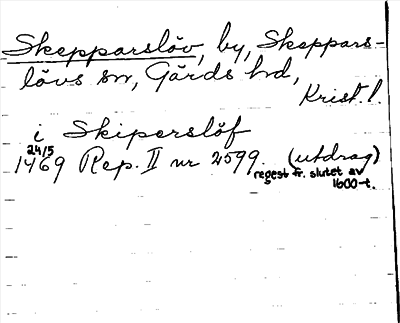 Skepparslöv, by, Skeppars-
lövs sn, Gärds hd,
Krist. l.
i Skiperslöf
24/5
1469 Rep. II nr 2599. (utdrag)
regest fr. slutet av
1600-t.